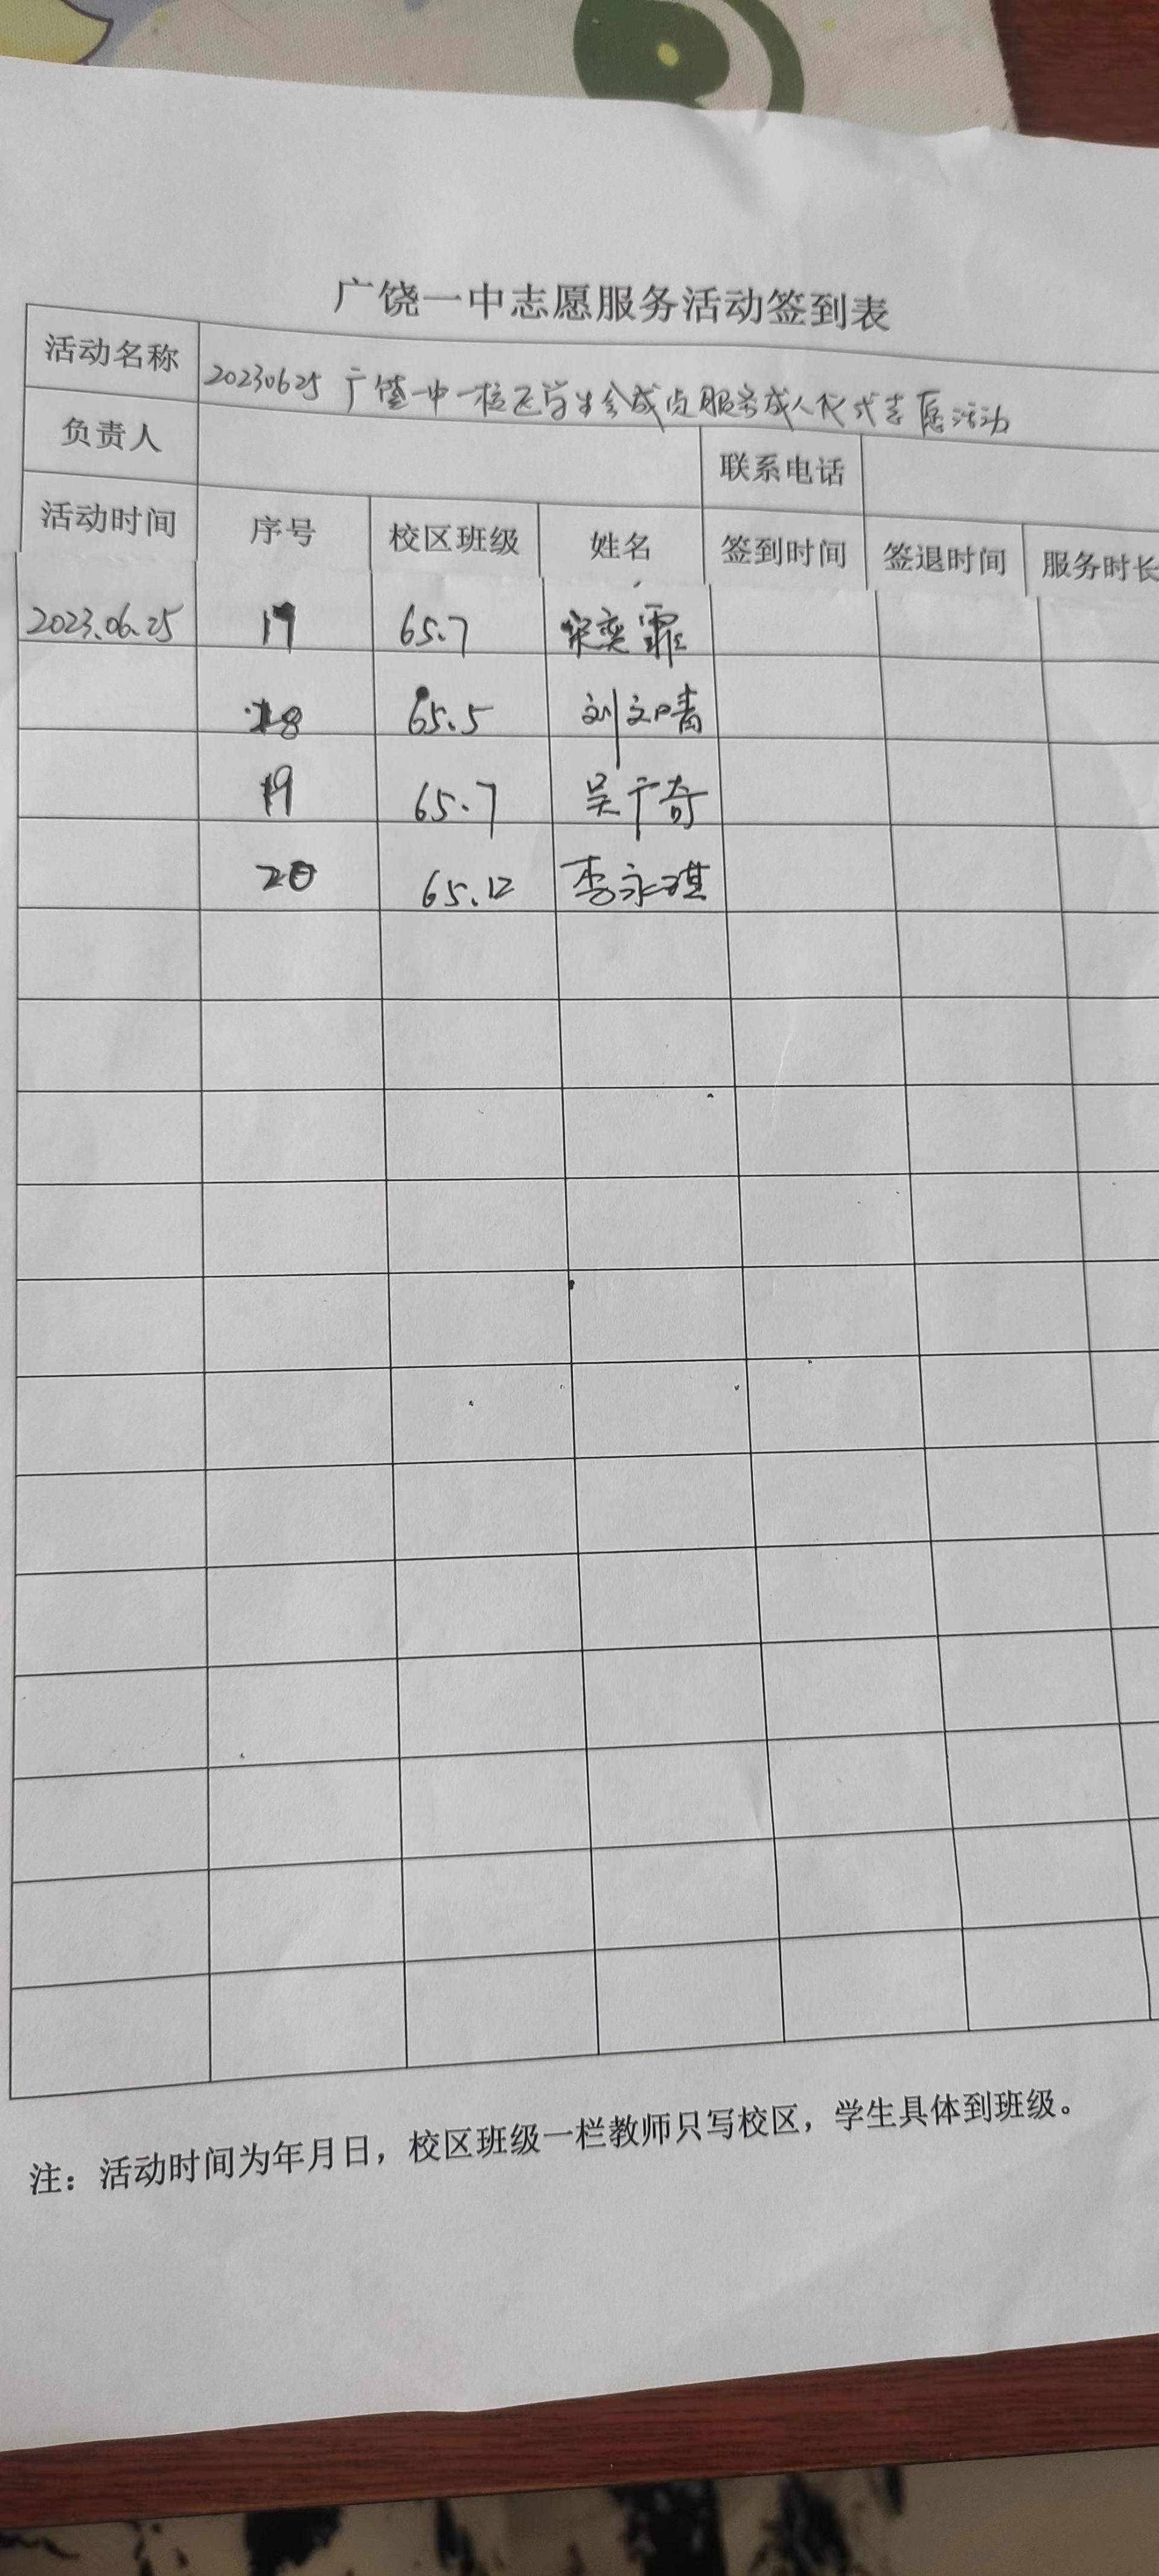 广饶一中志愿服务活动签到表
活动名称 20230625 广饶一中一校区学生会成员服务成人仪式志愿活动
负责人 联系电话
活动时间 序号 校区班级 姓名 签到时间 签退时间 服务时长
2023.06.25 17 65.7 宋奕霏
18 65.5 刘文晴
19 65.7 吴广奇
20 65.12 李永琪
注：活动时间为年月日，校区班级一栏教师只写校区，学生具体到班级。